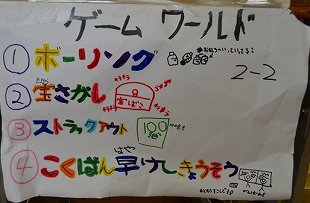 ゲーム ワールド
① ボーリング
2-2
② 宝さがし
たから
③ ストラックアウト
100
④ こくばん早けしきょうそう
はや